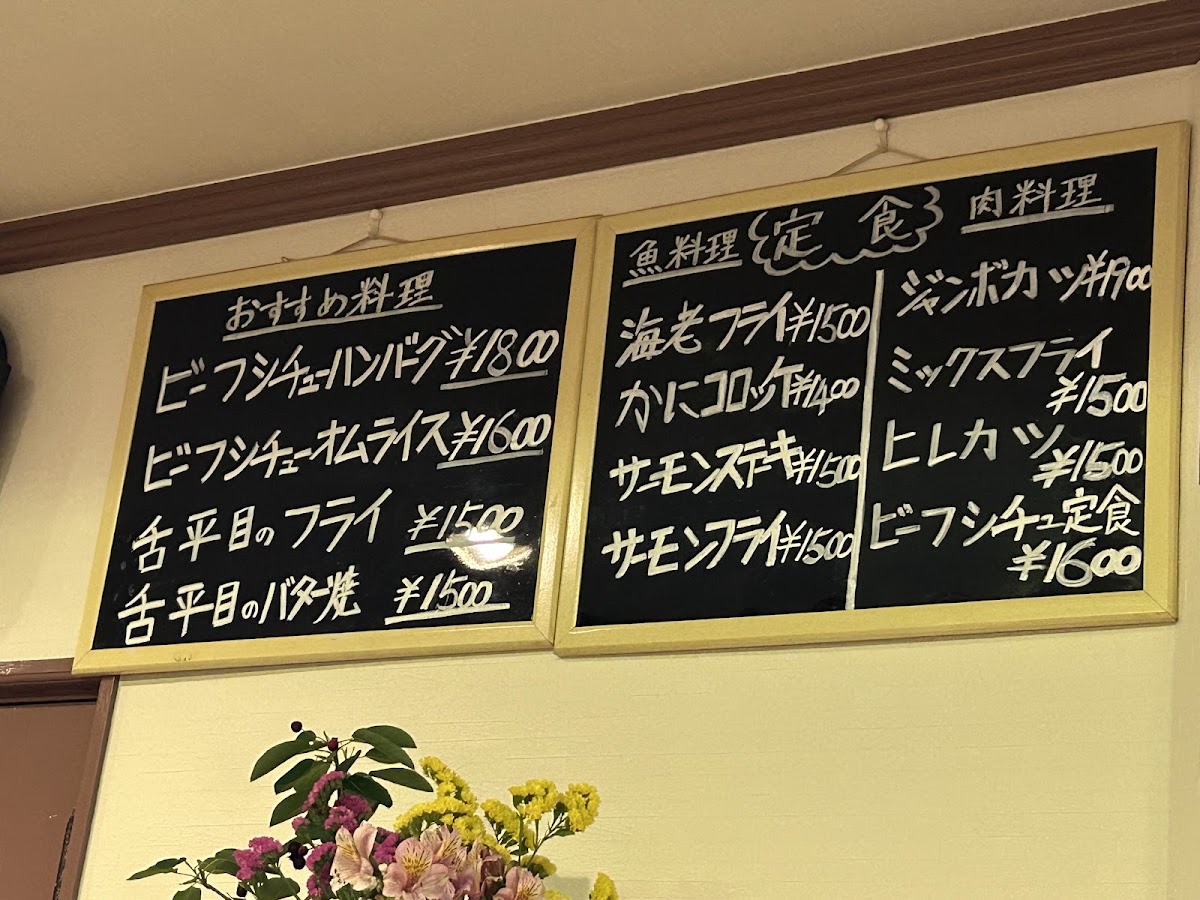 おすすめ料理
ビーフシチューハンバーグ ¥1800
ビーフシチューオムライス ¥1600
舌平目のフライ ¥1500
舌平目のバター焼 ¥1500
定食
魚料理
海老フライ ¥1500
かにコロッケ ¥1400
サーモンステーキ ¥1500
サーモンフライ ¥1500
肉料理
ジャンボカツ ¥1900
ミックスフライ
¥1500
ヒレカツ
¥1500
ビーフシチュ定食
¥1600